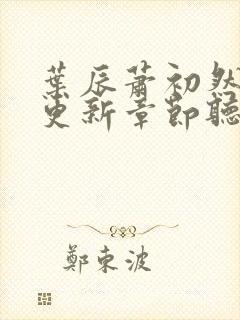 葉辰蕭初然
更新章節聽
鄭東波